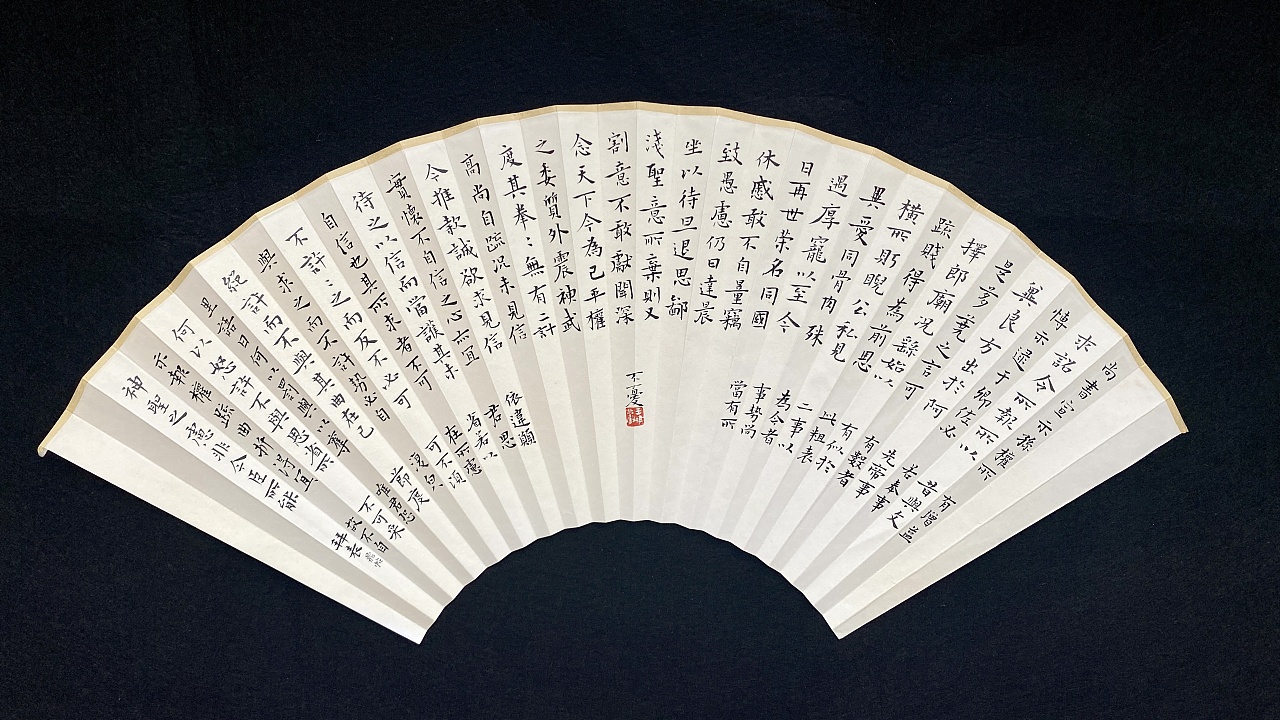 尚書宣示孫權所
求詔令所報所以
愽示逮于卿佐必
冀良方出於阿
是芻蕘之言可
擇郎廟況繇始以
疏賤得為前恩
橫所盼睨公私見
異愛同骨肉殊
遇厚寵以至今
日再世榮名同國
休慼敢不自量竊
致愚慮仍日達晨
坐以待旦退思鄙
淺聖意所棄則又
割意不敢獻聞深
念天下今為已平權
之委質外震神武
度其拳:無有二計
高尚自疏況未見信
今推款誠欲求見信
實懷不自信之心亦宜
待之以信而當護其未
自信也其所求者不可
不許:之而反不必可
與求之而不許勢必自
絕許而不與其曲在己
里語曰何以罰與以奪
何以怒許不與思省所
示報權疏曲折得宜
神聖之慮非今臣所能
有增益
昔與文
若奉事
先帝事
有數者
有似於
此粗表
二事以
為今者
事勢尚
當有所
依違願
君思
省若以
在所慮
可不須
復皃
節度
唯君恐
不可采
故不自
拜表
不憂